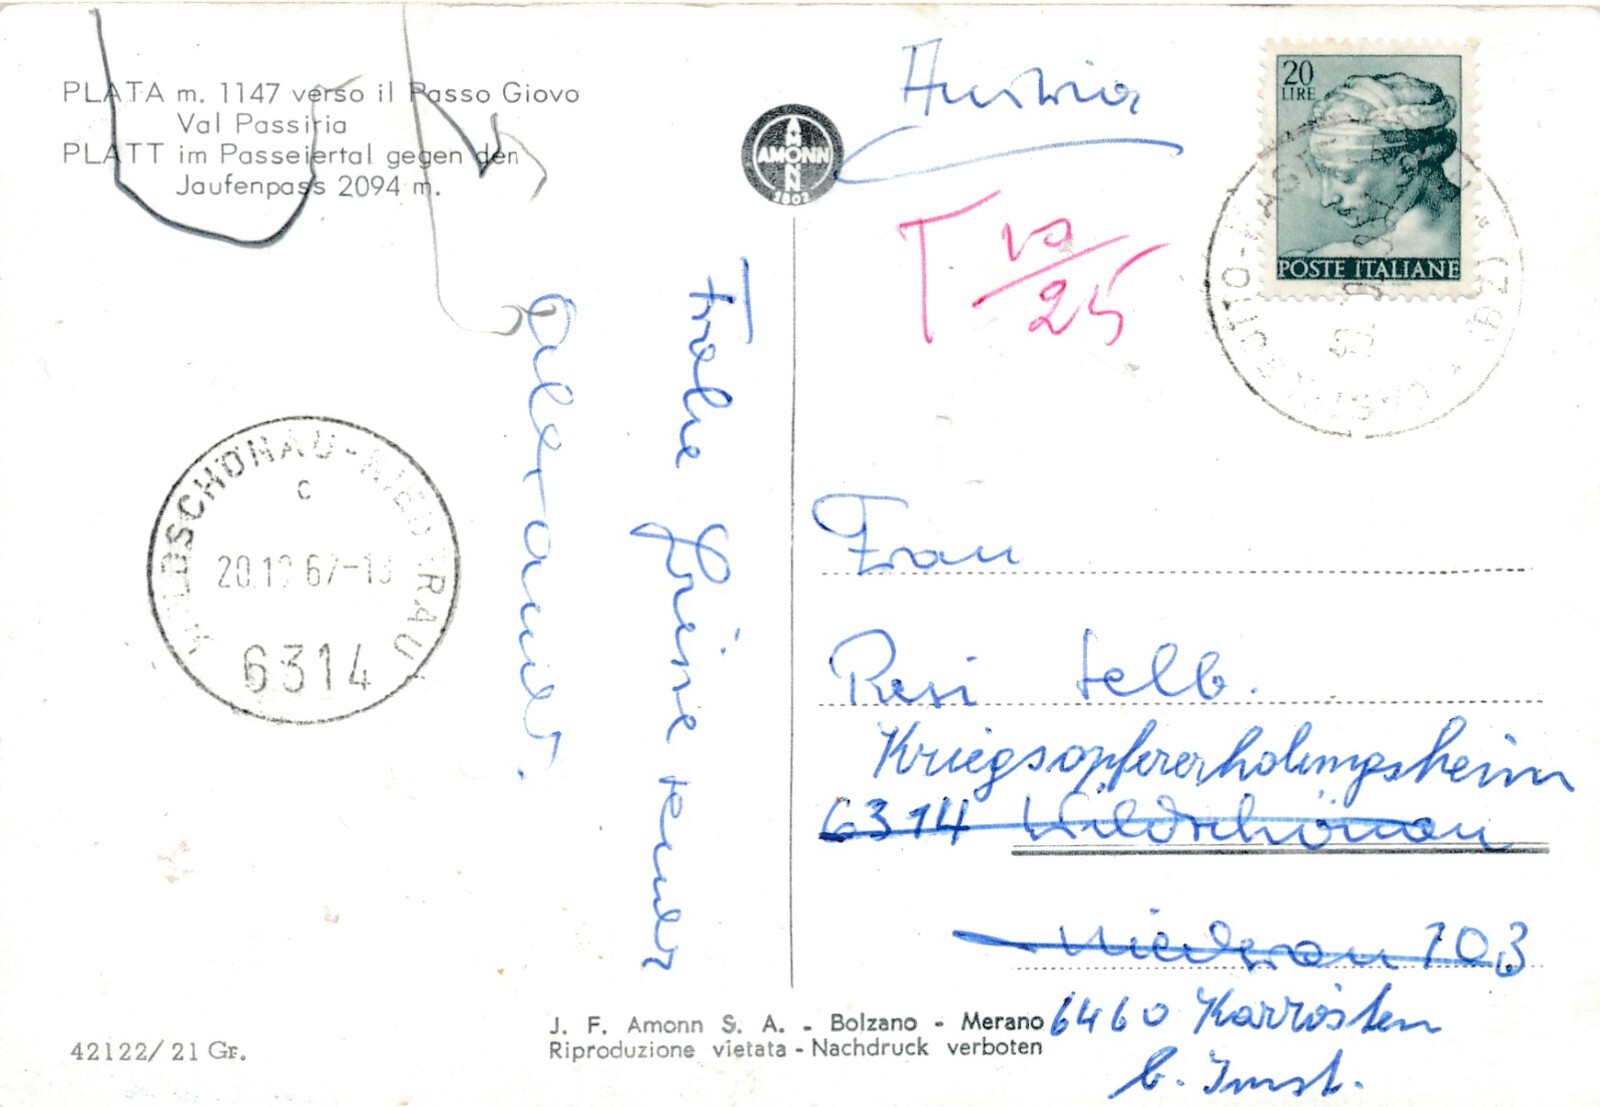 PLATA m. 1147 verso il Passo Giovo
Val Passiria
PLATT im Passeiertal gegen den
Jaufenpass 2094 m.
AMONN
AMONN
1802
Austria
T 10/25
20
LIRE
POSTE ITALIANE
(BZ)
WILDSCHÖNAU-NIEDERAU
c
20.10.67-18
6314
Frohe Grüsse sendet
Frau
Resi Selb.
Kriegsopfererholungsheim
6314 Wildschönau
Niederau 103
6460 Karrösten
b. Imst.
J. F. Amonn S. A. - Bolzano - Merano
Riproduzione vietata - Nachdruck verboten
42122/21 Gr.